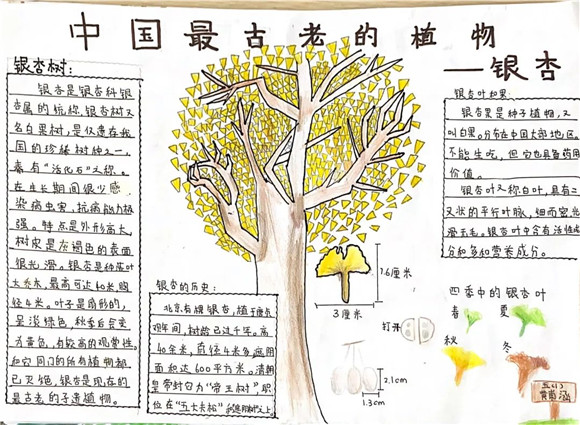 中国最古老的植物
——银杏
银杏树:
银杏是银杏科银
杏属的统称.银杏树又
名白果树,是仅遗在我
国的珍稀树种之一,
素有"活化石"之称。
在生长期间很少感
染病虫害,抗病能力极
强。特点是外形高大,
树皮是灰褐色的表面
很光滑。银杏是种落叶
大乔木,最高可达40米,胸
径4米。叶子是扇形的,
呈淡绿色,秋季后会变
为黄色,有较高的观赏性。
和它同门的所有植物都
已灭绝,银杏是现在的
最古老的孑遗植物。
银杏的历史:
北京有棵银杏,植于唐贞
观年间,树龄已过千年。高
40余米,直径4米多,遮阴
面积达600平方米。清朝
皇帝封它为"帝王树"职
位在"五大夫松"
银杏叶和果:
银杏果是种子植物,又
叫白果。分布在中国大部地区。
不能生吃,但它也具备药用
价值。
银杏叶又称白叶,具有二
叉状的平行叶脉,细而密,光
滑无毛。银杏叶中含有活性成
分和多种营养成分。
7.6厘米
3厘米
打开
2.1cm
1.3cm
四季中的银杏叶
春
夏
秋
冬
五(1)